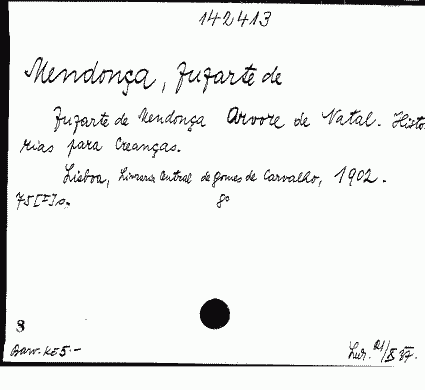 142413
Mendonça, Zuzarte de
Zuzarte de Mendonça Arvore de Natal. Histo
rias para Creanças.
Lisboa, Livraria Central de Gomes de Carvalho, 1902.
75 [I] s. 8º
8
Barv. KE5.-